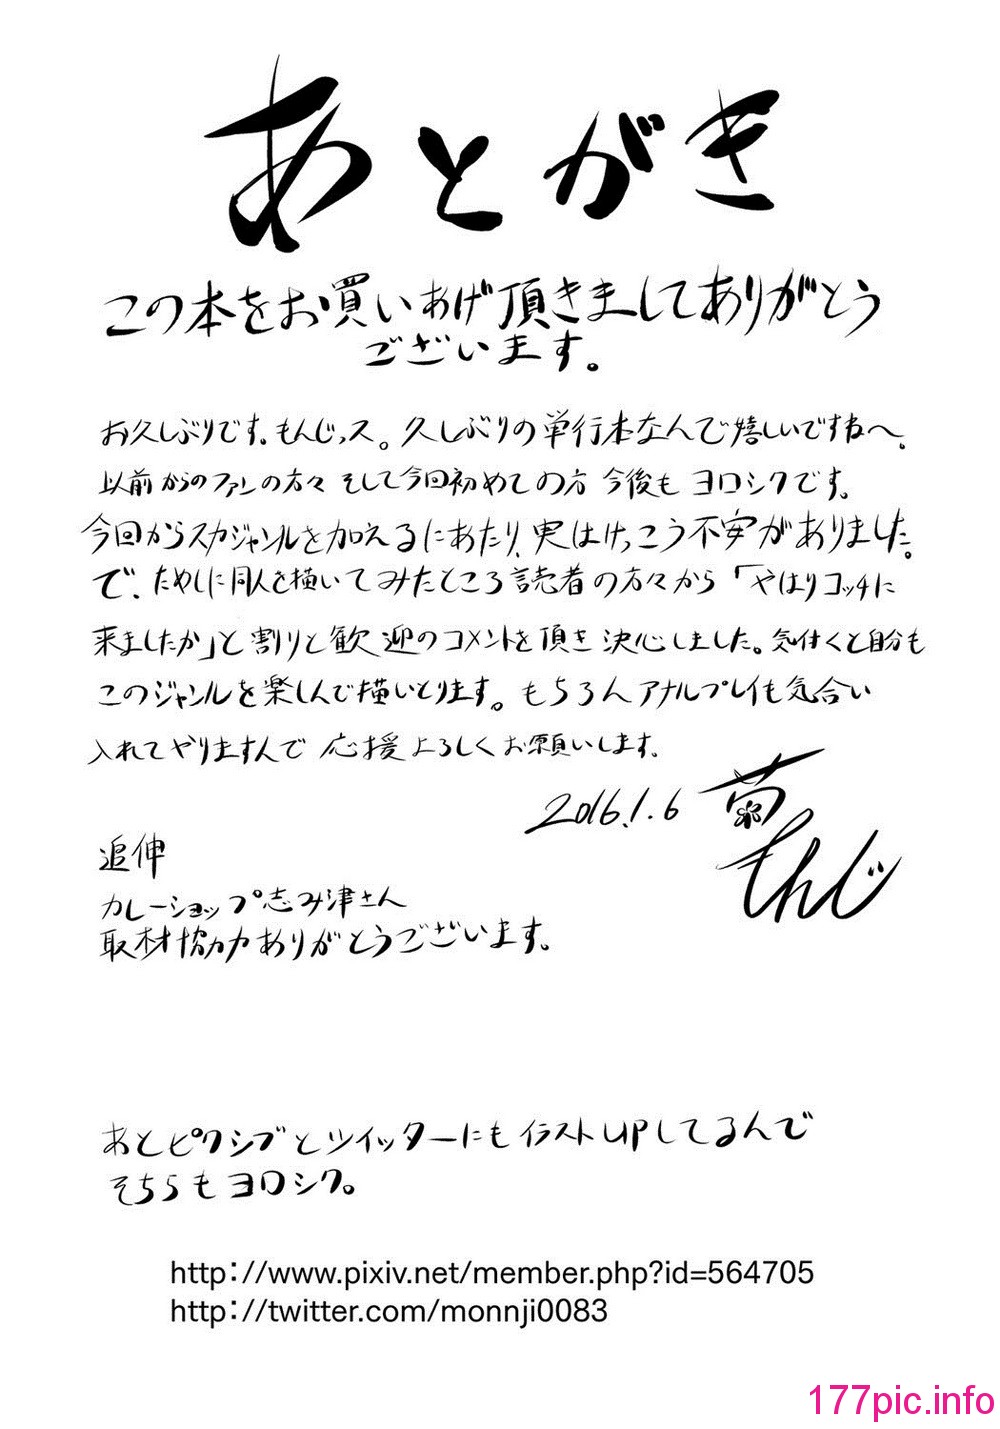 あとがき
この本をお買いあげ頂きましてありがとう
ございます。
お久しぶりです。もんじっス。久しぶりの単行本なんで嬉しいですねへ。
以前からのファンの方々 そして今回初めての方 今後も ヨロシクです。
今回からスカジャンルを加えるにあたり、実はけっこう不安がありました。
で、ためしに同人を描いてみたところ読者の方々から「やはりコッチに
来ましたか」と割りと歓迎のコメントを頂き決心しました。気付くと自分も
このジャンルを楽しんで描いとります。もちろんアナルプレイも気合い
入れてやりますんで 応援よろしくお願いします。
2016.1.6
菊
もんじ
追伸
カレーショップ志み津さん
取材協力ありがとうございます。
あとピクシブとツイッターにもイラストUPしてるんで
そちらもヨロシク。
http://www.pixiv.net/member.php?id=564705
http://twitter.com/monnji0083
177pic.info